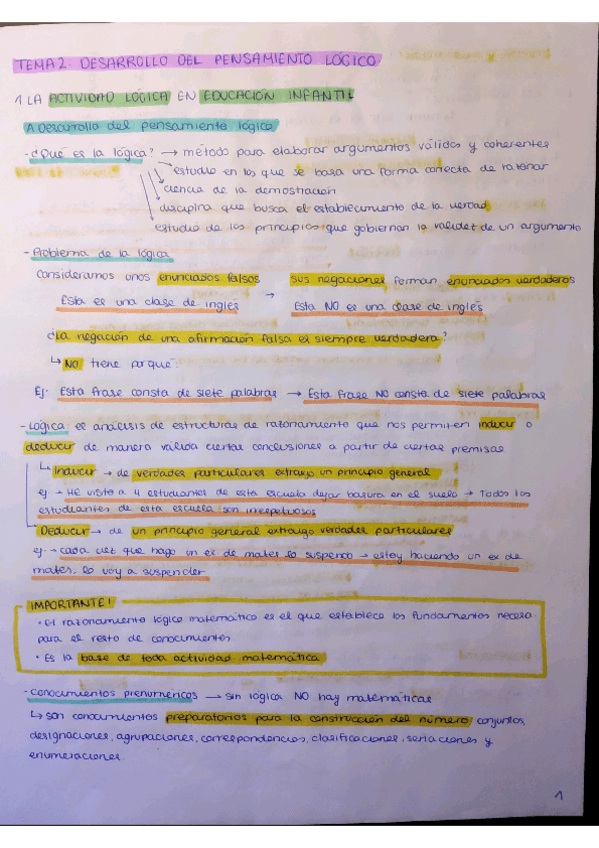 TEMA 2. DESARROLLO DEL PENSAMIENTO LÓGICO
1. LA ACTIVIDAD LÓGICA EN EDUCACIÓN INFANTIL
A. Desarrollo del pensamiento lógico
- ¿Qué es la lógica? → método para elaborar argumentos válidos y coherentes
→ estudio en los que se basa una forma correcta de razonar
→ ciencia de la demostración
→ disciplina que busca el establecimiento de la verdad
→ estudio de los principios que gobiernan la validez de un argumento
- Problema de la lógica
Consideramos unos enunciados falsos sus negaciones forman enunciados verdaderos
Esta es una clase de inglés → Esta NO es una clase de inglés
¿La negación de una afirmación falsa es siempre verdadera?
↳ NO tiene porqué.
Ej. Esta frase consta de siete palabras → Esta frase NO consta de siete palabras
- Lógica: el análisis de estructuras de razonamiento que nos permiten inducir o
deducir de manera válida ciertas conclusiones a partir de ciertas premisas
↳ Inducir → de verdades particulares extraigo un principio general
ej → HE visto a 4 estudiantes de esta escuela dejar basura en el suelo → Todos los
estudiantes de esta escuela son irrespetuosos
↳ Deducir → de un principio general extraigo verdades particulares
ej → cada vez que hago un ex de mates lo suspendo → estoy haciendo un ex de
mates, lo voy a suspender
IMPORTANTE!
• El razonamiento lógico matemático es el que establece los fundamentos necesa
para el resto de conocimientos
• Es la base de toda actividad matemática
- Conocimientos prenuméricos → sin lógica NO hay matemáticas
↳ son conocimientos preparatorios para la construcción del número: conjuntos,
designaciones, agrupaciones, correspondencias, clasificaciones, seriaciones y
enumeraciones.
1